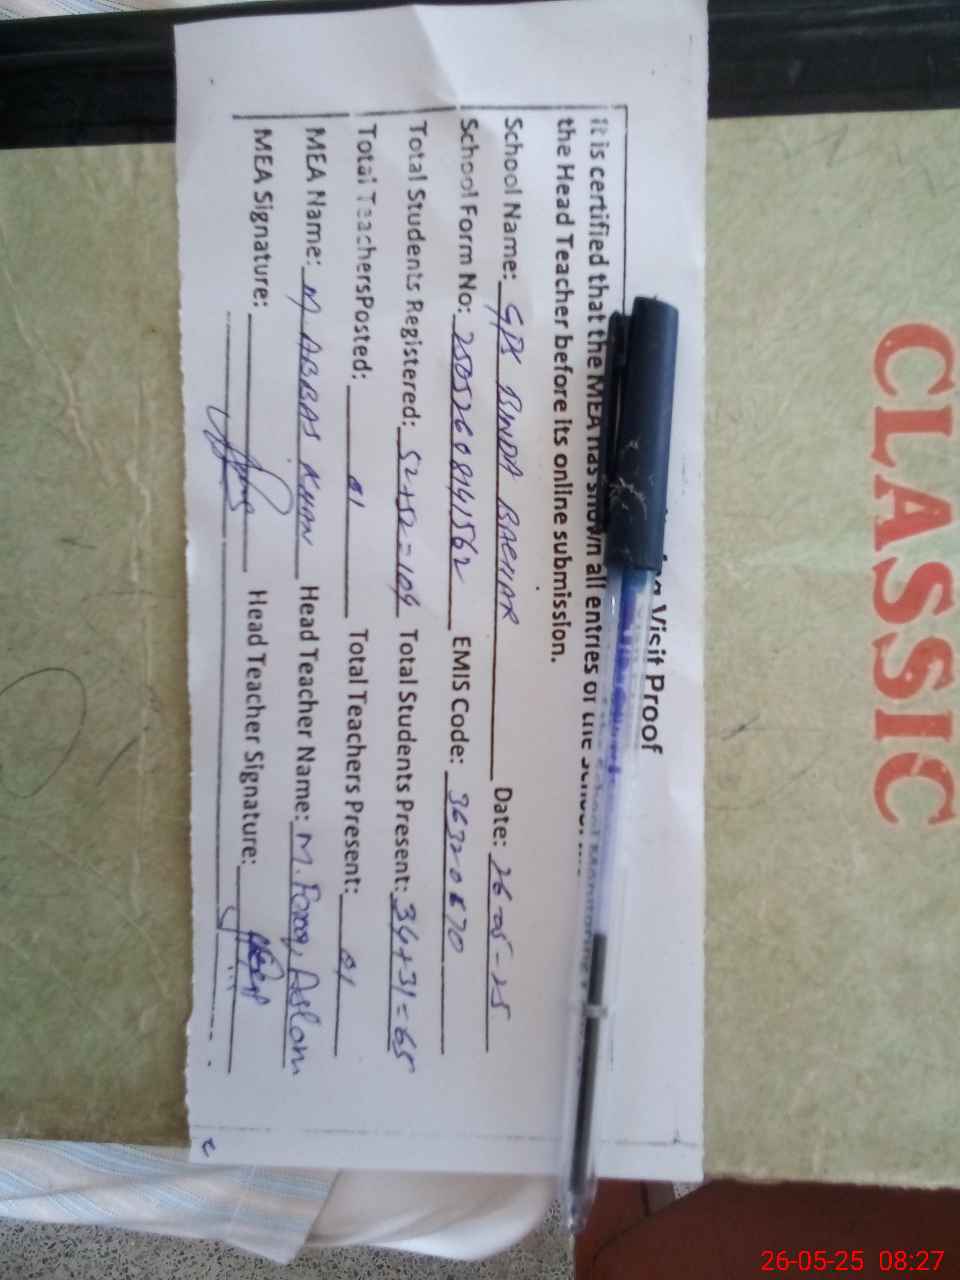 CLASSIC
Visit Proof
It is certified that the MEA has shown all entries of the School
the Head Teacher before its online submission.
School Name: GPS BINDA BACHAR Date: 26-05-25
School Form No: 25052608141562 EMIS Code: 36320670
Total Students Registered: 52+52=104 Total Students Present: 34+31=65
Total TeachersPosted: 01 Total Teachers Present: 01
MEA Name: M ABBAS KHAN Head Teacher Name: M. Farooq, Aslam
MEA Signature: Head Teacher Signature:
26-05-25 08:27